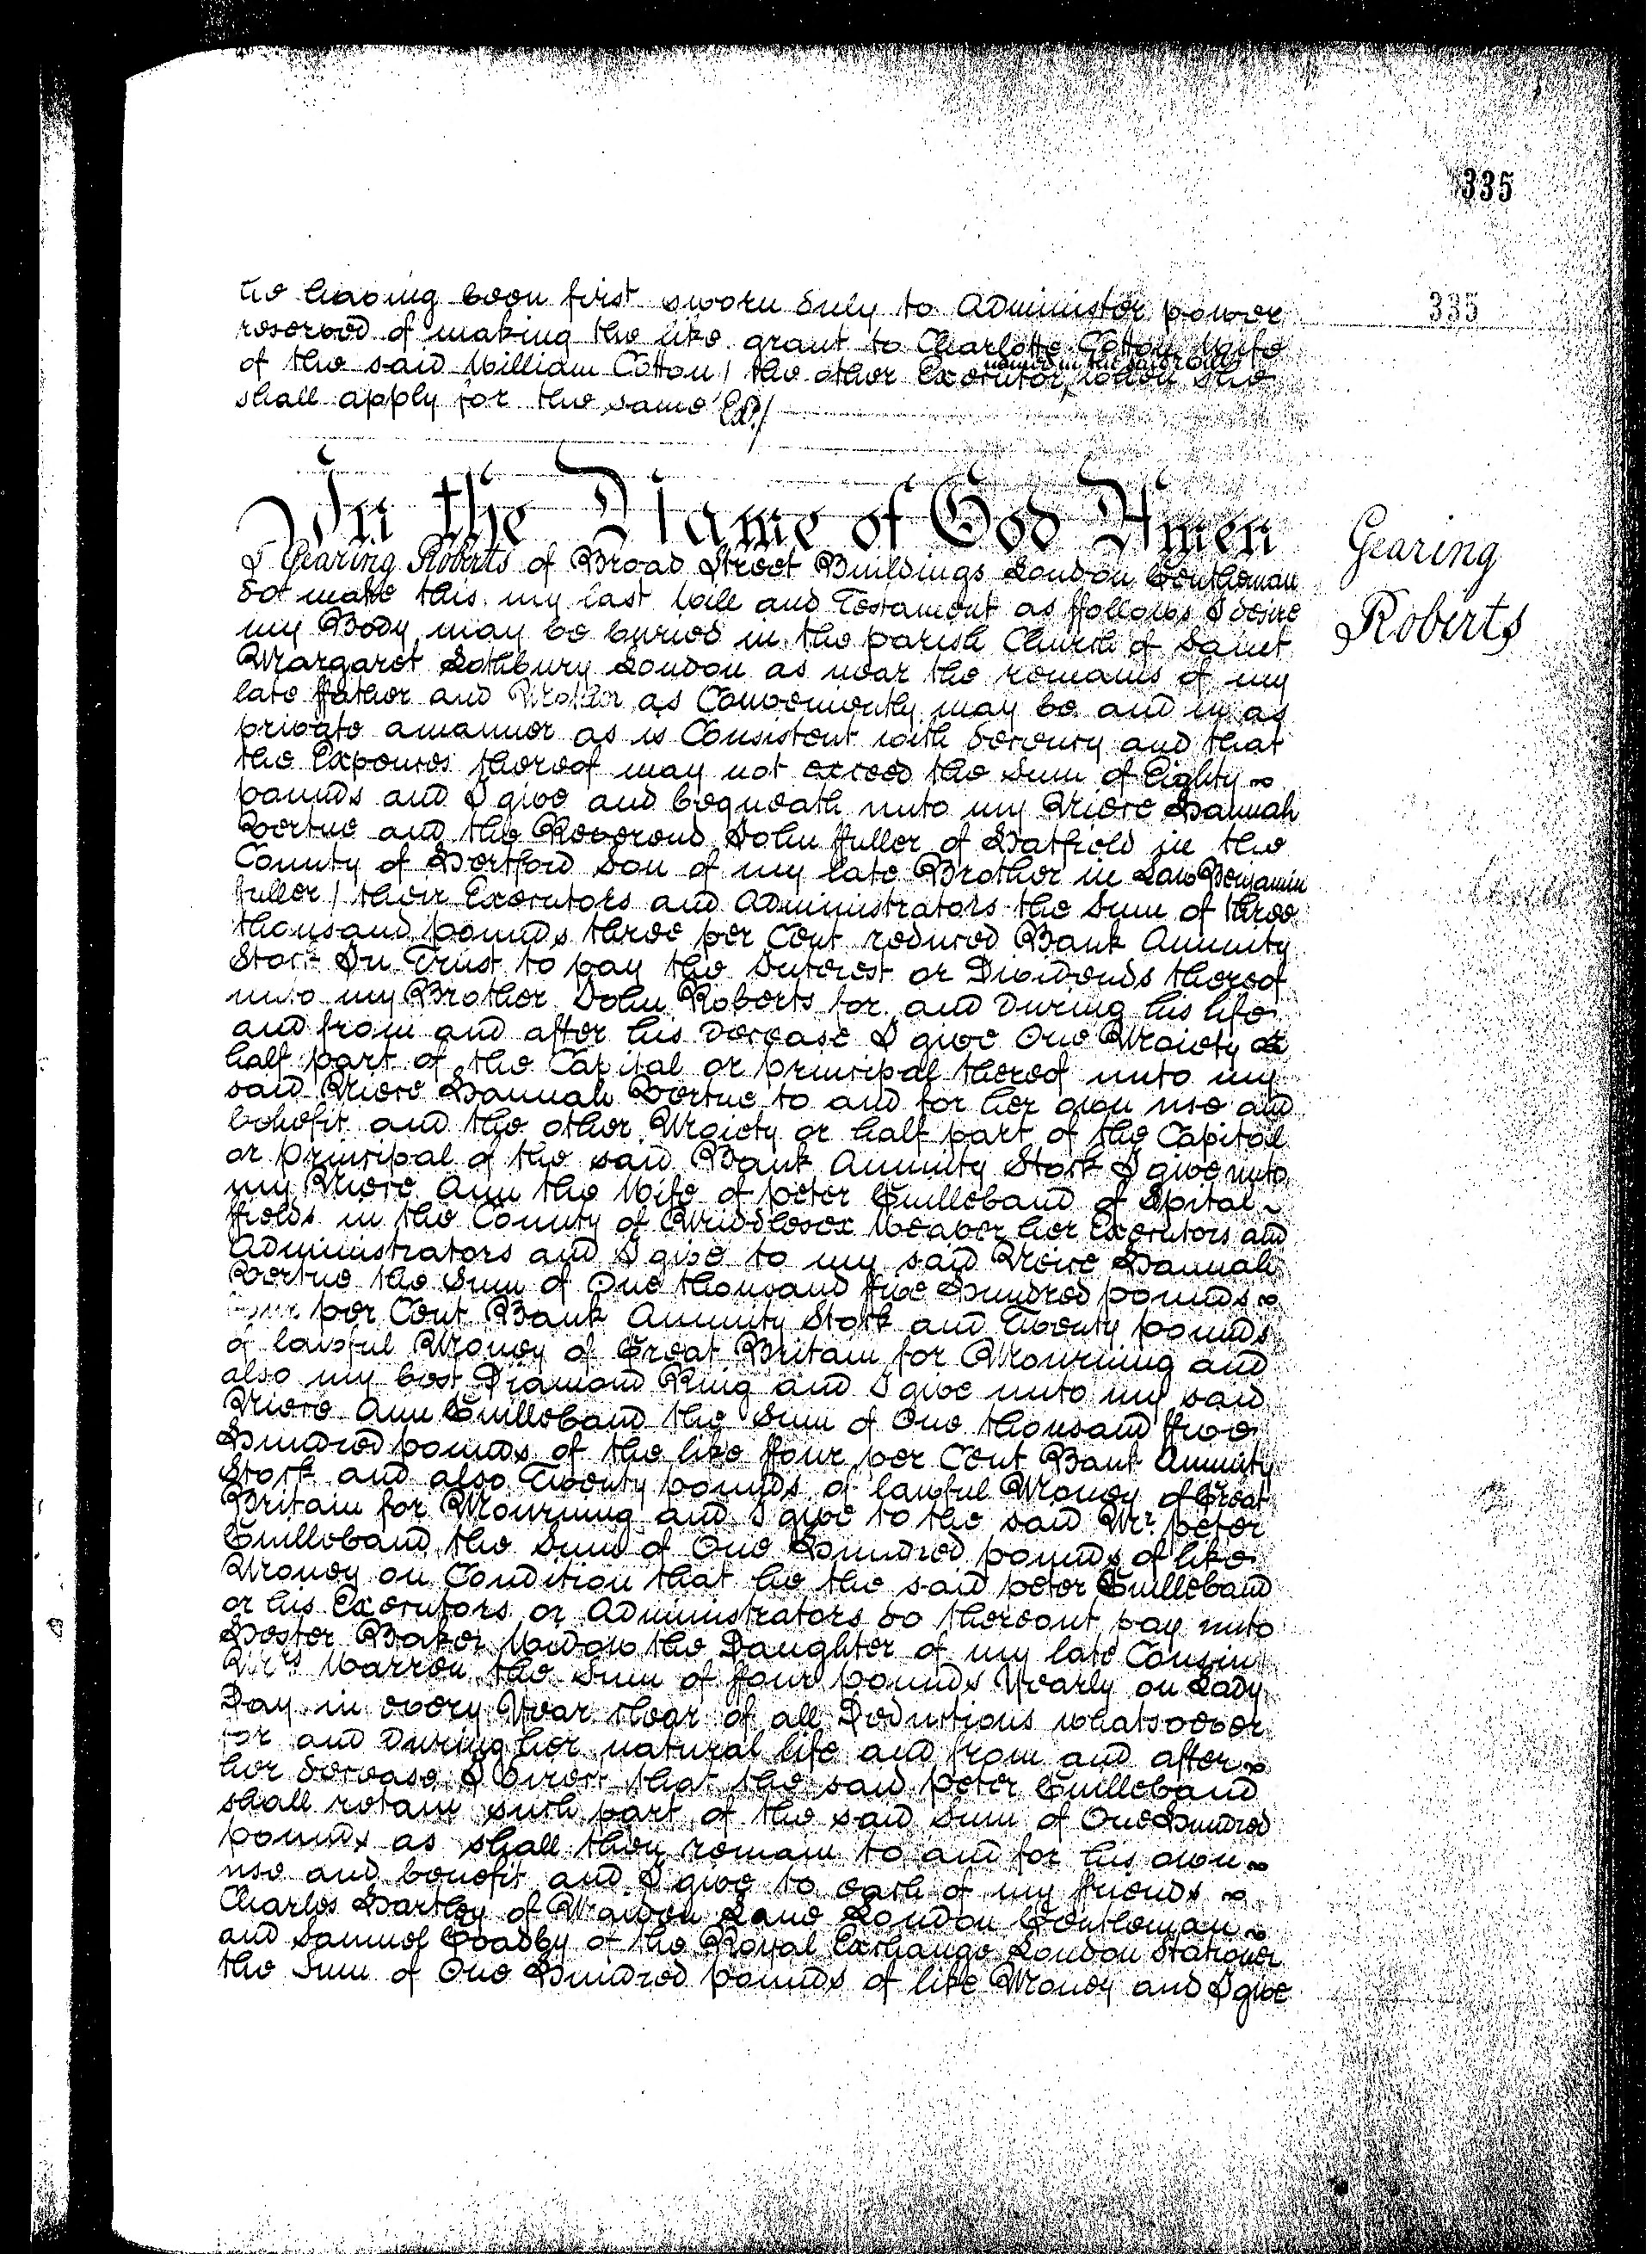 335
335
he having been first sworn duly to Administer power
reserved of making the like grant to Charlotte Cotton Wife
of the said William Cotton / the other Executor named in the said Will when she
shall apply for the same
In the Name of God Amen
Gearing
Roberts
I Gearing Roberts of Broad Street Buildings London Gentleman
do make this my last Will and Testament as ffollows I desire
my Body may be buried in the parish Church of Saint
Margaret Lothbury London as near the remains of my
late ffather and Mother as Conveniently may be and in as
private amanner as is Consistent with decency and that
the Expences thereof may not exceed the Sum of Eighty
pounds and I give and bequeath unto my Niece Hannah
Vertue and the Reverend John ffuller of Hatfield in the
County of Hertford Son of my late Brother in Law Benjamin
ffuller / their Executors and Administrators the Sum of three
thousand pounds three per Cent reduced Bank Annuity
Stock In Trust to pay the Interest or Dividends thereof
unto my Brother John Roberts for and during his life
and from and after his decease I give One Moiety or
half part of the Capital or principal thereof unto my
said Niece Hannah Vertue to and for her own use and
benefit and the other Moiety or half part of the Capital
or principal of the said Bank Annuity Stock I give unto
my Niece Ann the Wife of peter Guillebaud of Spital
ffields in the County of Middlesex Weaver her Executors and
Administrators and I give to my said Neice Hannah
Vertue the Sum of One thousand ffive Hundred pounds
ffour per Cent Bank Annuity Stock and Twenty pounds
of lawful Money of Great Britain for Mourning and
also my best Diamond Ring and I give unto my said
Niece Ann Guillebaud the Sum of One thousand ffive
Hundred pounds of the like ffour per Cent Bank Annuity
Stock and also Twenty pounds of lawful Money of Great
Britain for Mourning and I give to the said Mr. peter
Guillebaud the Sum of One Hundred pounds of like
Money on Condition that he the said peter Guillebaud
or his Executors or Administrators do thereout pay unto
Hester Baker Widow the Daughter of my late Cousin
Mrs Warren the Sum of ffour pounds Yearly on Lady
Day in every Year clear of all Deductions whatsoever
for and during her natural life and from and after
her decease I direct that the said peter Guillebaud
shall retain such part of the said Sum of One Hundred
pounds as shall then remain to and for his own
use and benefit and I give to each of my ffriends
Charles Hartley of Maiden Lane London Gentleman
and Samuel Goadby of the Royal Exchange London Stationer
the Sum of One Hundred pounds of like Money and I give